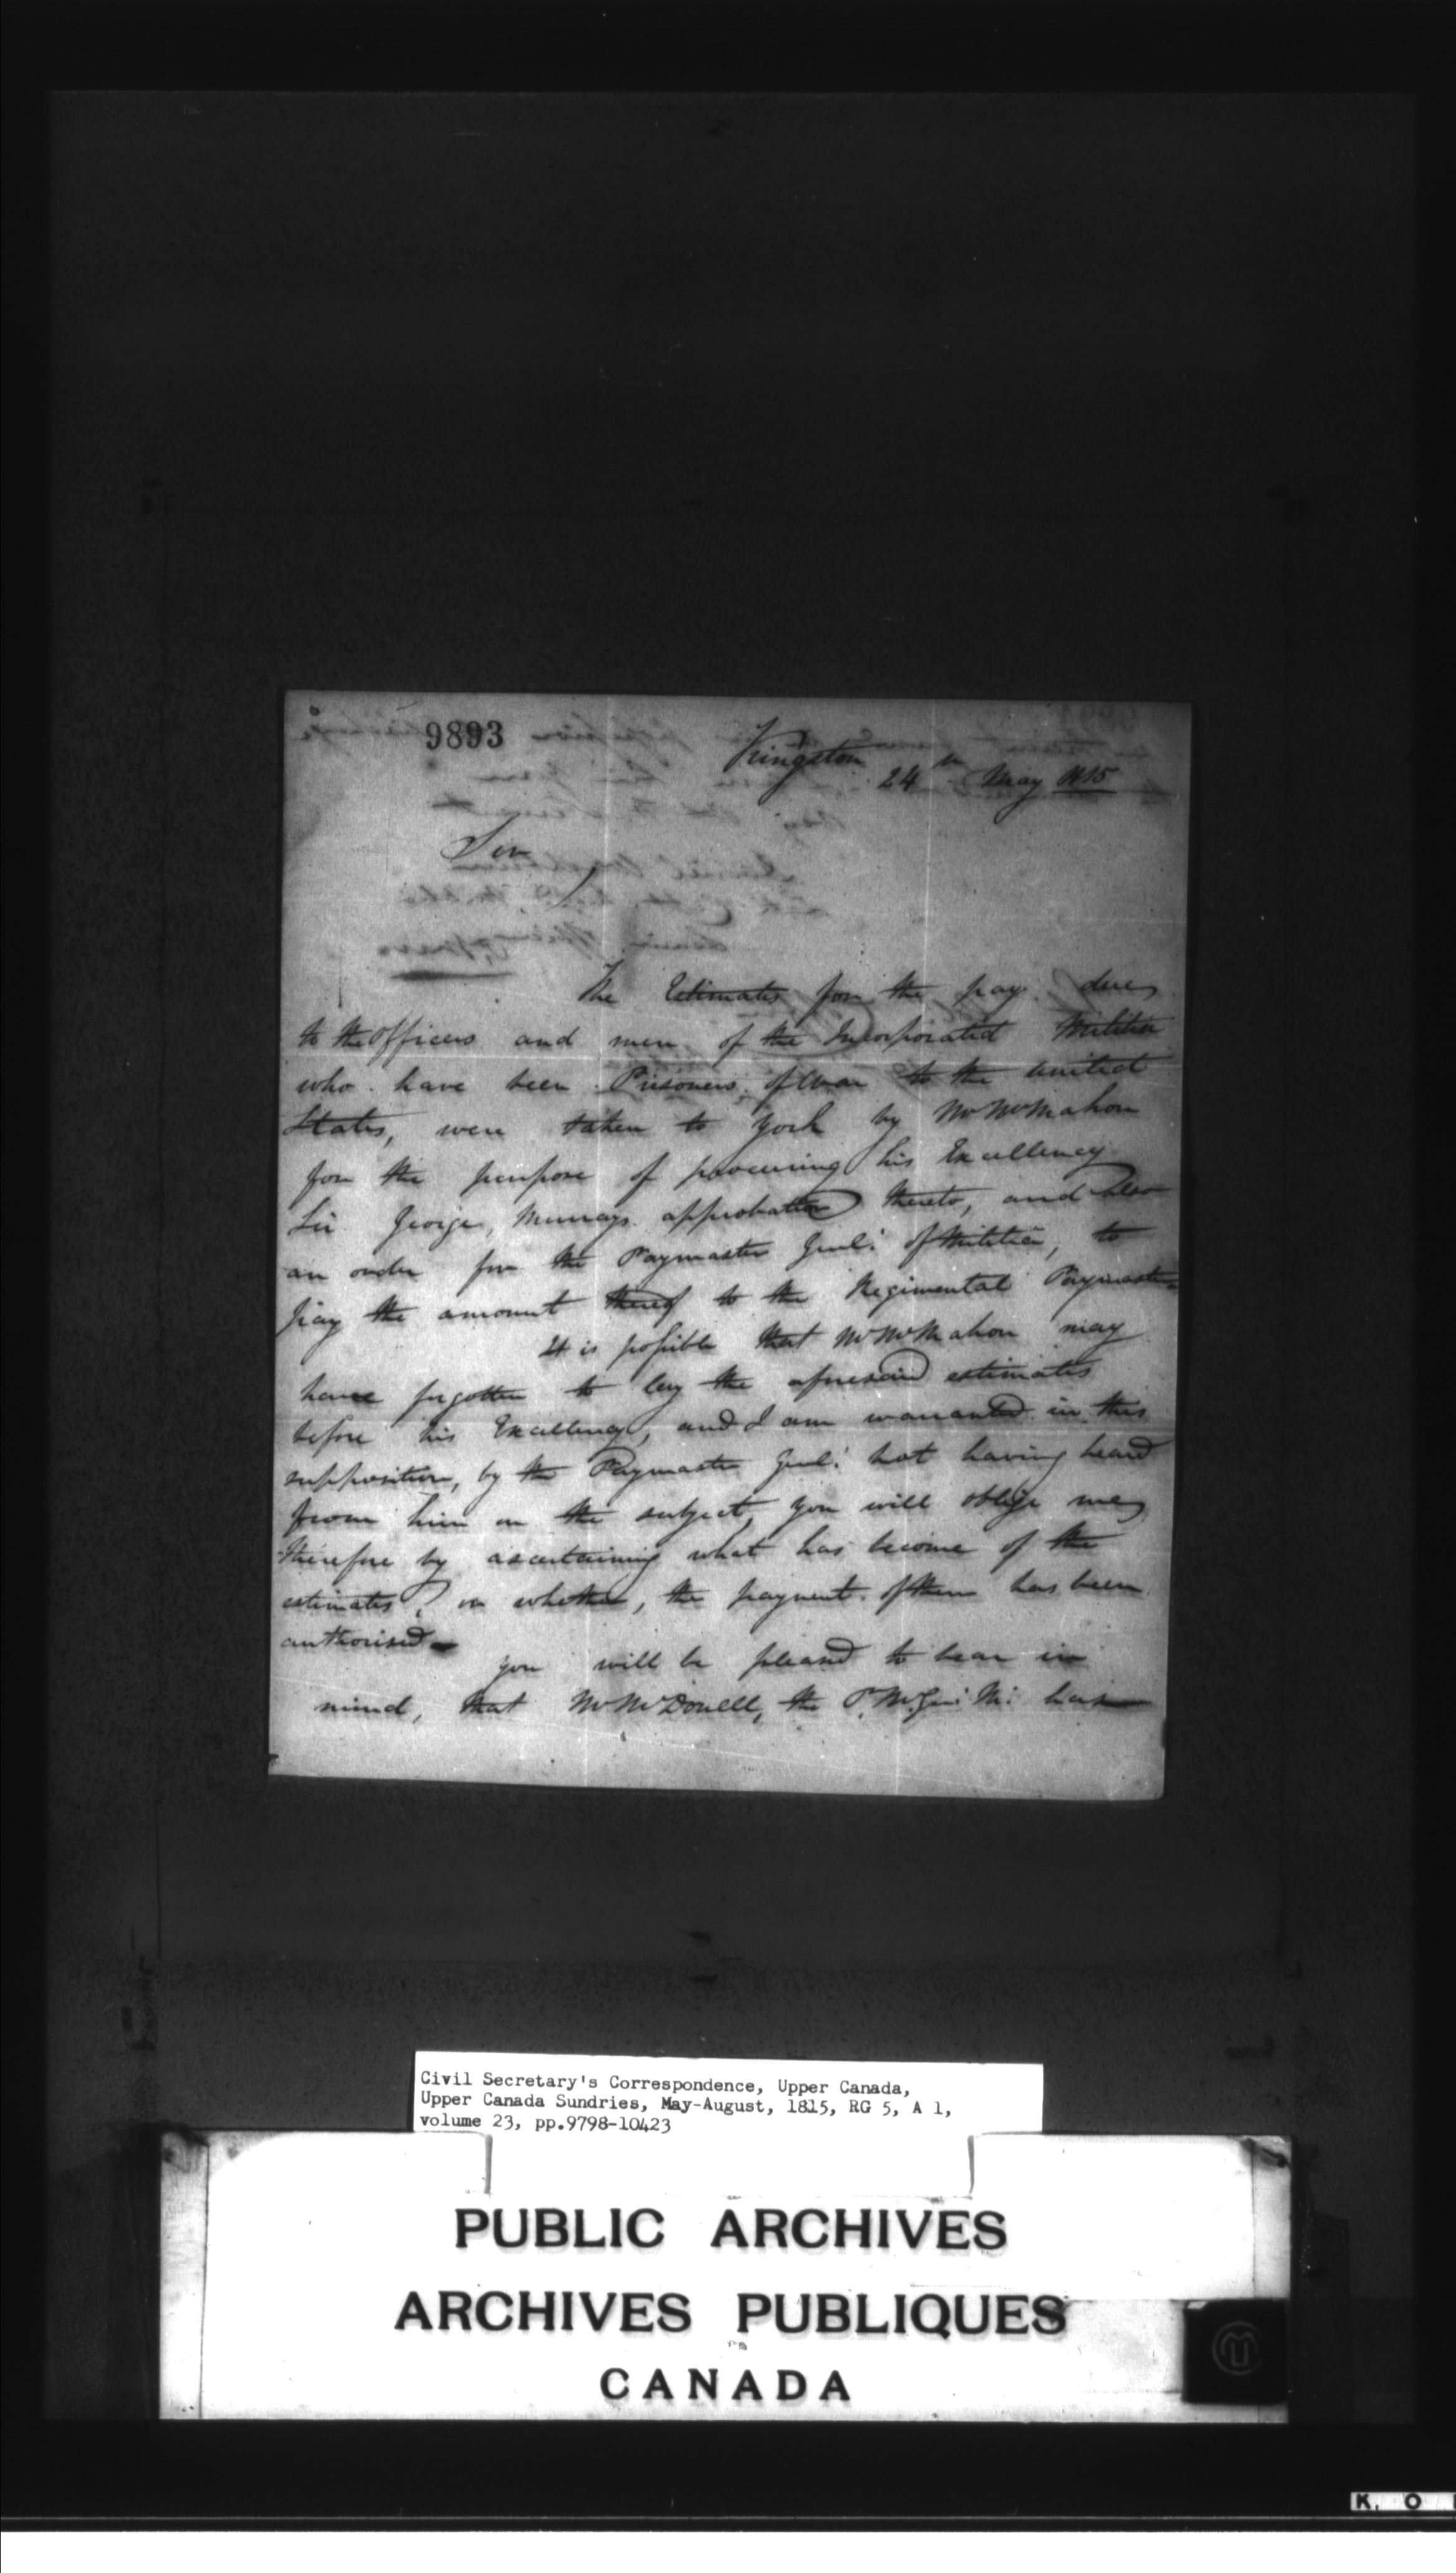 9893
Kingston
24th May 1815
Sir,
The Estimates for the pay due
to the Officers and men of the Incorporated Militia
who have been Prisoners of War to the United
States, were taken to York by Mr McMahon
for the purpose of procuring his Excellency
Sir George, Murrays approbation thereto, and also
an order for the Paymaster Genl: of Militia, to
pay the amount thereof to the Regimental Paymaster
It is possible that Mr McMahon may
have forgotten to lay the aforesaid estimates
before his Excellency, and I am warranted in this
supposition, by the Paymaster Genl: not having heard
from him on the subject, you will oblige me
therefore by ascertaining what has become of the
estimates, or whether, the payment of them has been
authorised
you will be pleased to bear in
mind, that Mr McDonell, the P. M. Gen: M: has
Civil Secretary's Correspondence, Upper Canada,
Upper Canada Sundries, May-August, 1815, RG 5, A 1,
volume 23, pp.9798-10423
PUBLIC ARCHIVES
ARCHIVES PUBLIQUES
CANADA
K. O